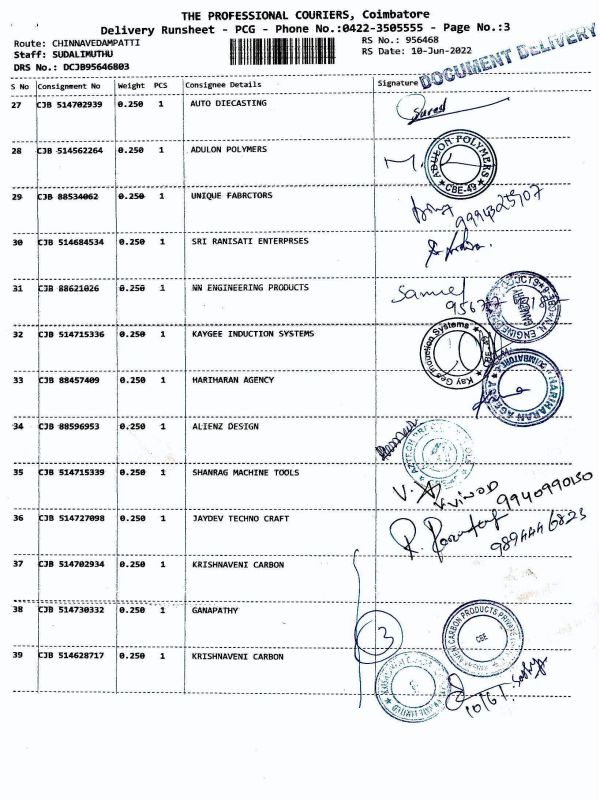 THE PROFESSIONAL COURIERS, Coimbatore
Delivery Runsheet - PCG - Phone No.:0422-3505555 - Page No.:3
Route: CHINNAVEDAMPATTI
RS No.: 956468
Staff: SUDALIMUTHU
RS Date: 10-Jun-2022
DRS No.: DCJB95646803
DOCUMENT DELIVERY
S No Consignment No Weight PCS Consignee Details Signature
27 CJB 514702939 0.250 1 AUTO DIECASTING
Suresh
28 CJB 514562264 0.250 1 ADULON POLYMERS
M.
ADULON POLYMERS
CBE-49
29 CJB 88534062 0.250 1 UNIQUE FABRCTORS
9994325707
30 CJB 514684534 0.250 1 SRI RANISATI ENTERPRSES
31 CJB 88621026 0.250 1 NN ENGINEERING PRODUCTS
Samuel
32 CJB 514715336 0.250 1 KAYGEE INDUCTION SYSTEMS
Kay Gee Induction Systems
33 CJB 88457409 0.250 1 HARIHARAN AGENCY
HARIHARAN AGENCY
COIMBATORE
34 CJB 88596953 0.250 1 ALIENZ DESIGN
35 CJB 514715339 0.250 1 SHANRAG MACHINE TOOLS
V. A
V.VINOD
9940990150
36 CJB 514727098 0.250 1 JAYDEV TECHNO CRAFT
9894446823
37 CJB 514702934 0.250 1 KRISHNAVENI CARBON
38 CJB 514730332 0.250 1 GANAPATHY
3
KRISHNAVENI CARBON PRODUCTS PRIVATE
CBE
39 CJB 514628717 0.250 1 KRISHNAVENI CARBON
10/6/